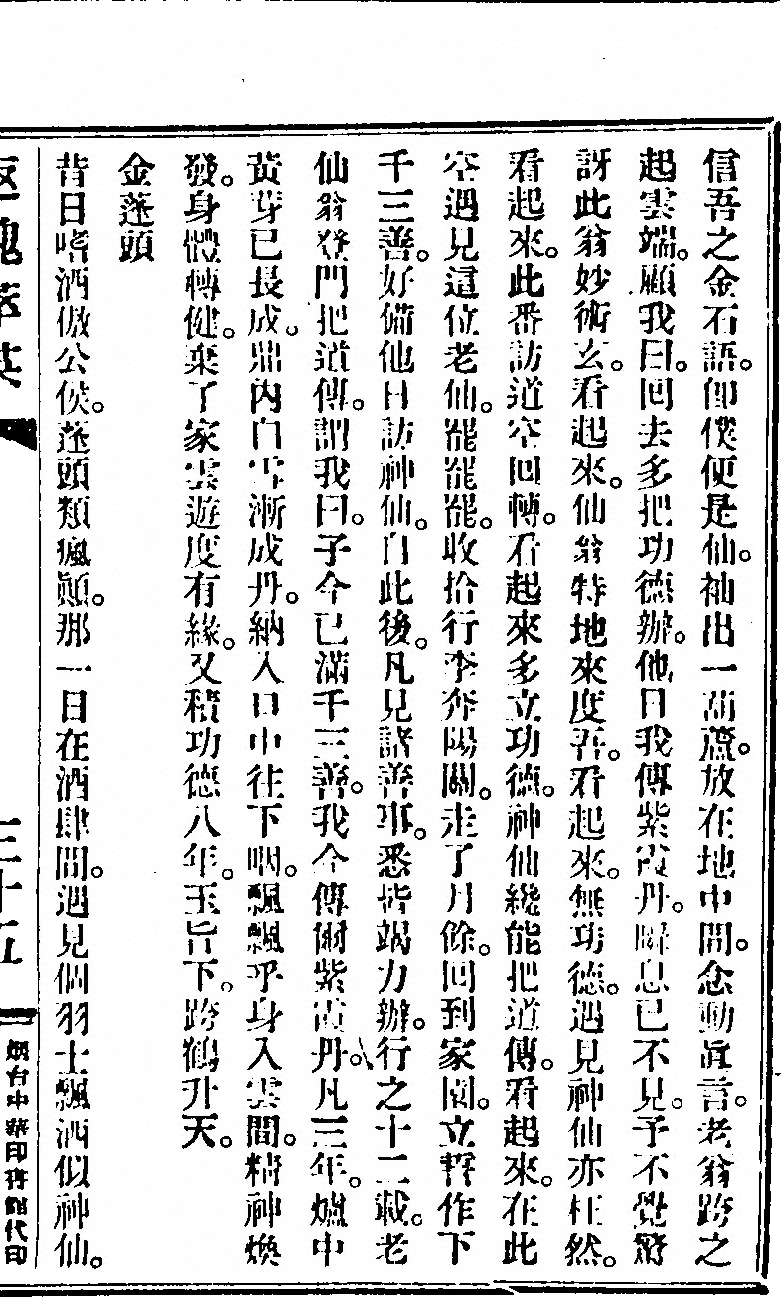 信吾之金石語。卽僕便是仙。袖出一葫蘆。放在地中間。念動眞言。老翁跨之
起雲端。顧我曰。回去多把功德辦。他日我傳紫霞丹。瞬息已不見。予不覺驚
訝此翁妙術玄。看起來。仙翁特地來度吾。看起來。無功德。遇見神仙亦枉然。
看起來。此番訪道空回轉。看起來多立功德。神仙纔能把道傳。看起來。在此
空遇見這位老仙。罷罷罷。收拾行李奔陽關。走了月餘。回到家園。立誓作下
千三善。好備他日訪神仙。自此後。凡見諸善事。悉皆竭力辦。行之十二載。老
仙翁登門把道傳。謂我曰。子今已滿千三善。我今傳爾紫霞丹。凡三年。爐中
黃芽已長成。鼎內白雪漸成丹。納入口中往下咽。飄飄乎身入雲間。精神煥
發。身體轉健。棄了家雲遊度有緣。又積功德八年。玉旨下。跨鶴升天。
金蓬頭
昔日嗜酒傲公侯。蓬頭類瘋顚。那一日在酒肆間。遇見個羽士飄洒似神仙。
返魂萃英
三十五
烟台中華印書館代印